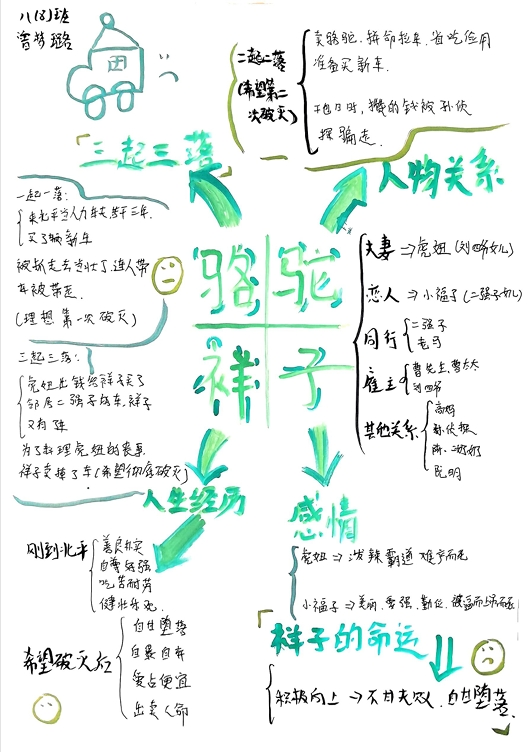 八(8)班
三起三落
一起一落:
来北平当人力车夫,苦干三年,
买了辆新车
被抓走去当壮丁,连人带
车被带走
(理想第一次破灭)
二起二落
(希望第二
次破灭)
卖骆驼,拼命拉车,省吃俭用
准备买新车.
攒的钱被孙侦
探骗走.
三起三落:
虎妞出钱给祥子买了
邻居二强子的车,祥子
又有了车
为了料理虎妞的丧事
祥子卖掉了车(希望彻底破灭)
骆驼
祥子
人物关系
夫妻→虎妞(刘四爷女儿)
恋人→小福子(二强子女儿)
同行
二强子
老马
雇主
曹先生,曹太太
刘四爷
其他关系
高妈
孙侦探
人生经历
刚到北平
善良朴实
自尊好强
吃苦耐劳
希望破灭后
自甘堕落
自暴自弃
爱占便宜
出卖人命
感情
虎妞→泼辣霸道 难产而死
小福子→美丽,要强,勤俭,
祥子的命运
积极向上→不甘失败,自甘堕落.